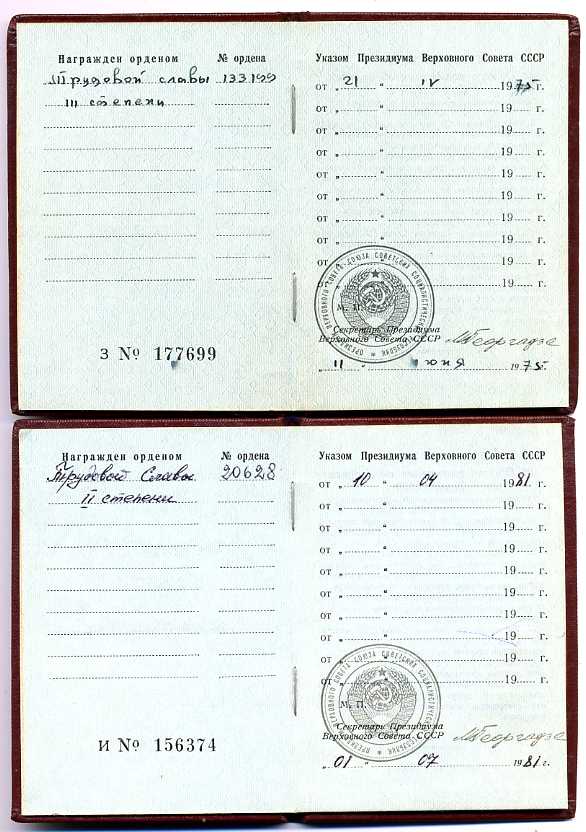 Награжден орденом № ордена
Трудовой славы 133199
III степени
З № 177699
Указом Президиума Верховного Совета СССР
от „ 21 “ IV 1975 г.
от „ “ 19 г.
от „ “ 19 г.
от „ “ 19 г.
от „ “ 19 г.
от „ “ 19 г.
от „ “ 19 г.
от „ “ 19 г.
от „ “ 19 г.
от „ “ 19 г.
ПРЕЗИДИУМ ВЕРХОВНОГО СОВЕТА СОЮЗА СОВЕТСКИХ СОЦИАЛИСТИЧЕСКИХ РЕСПУБЛИК
М. П.
Секретарь Президиума
Верховного Совета СССР
МГеоргадзе
„ 11 “ июня 1975 г.
Награжден орденом № ордена
Трудовой Славы 20628
II степени
И № 156374
Указом Президиума Верховного Совета СССР
от „ 10 “ 04 1981 г.
от „ “ 19 г.
от „ “ 19 г.
от „ “ 19 г.
от „ “ 19 г.
от „ “ 19 г.
от „ “ 19 г.
от „ “ 19 г.
от „ “ 19 г.
от „ “ 19 г.
ПРЕЗИДИУМ ВЕРХОВНОГО СОВЕТА СОЮЗА СОВЕТСКИХ СОЦИАЛИСТИЧЕСКИХ РЕСПУБЛИК
М. П.
Секретарь Президиума
Верховного Совета СССР
МГеоргадзе
„ 01 “ 07 1981 г.